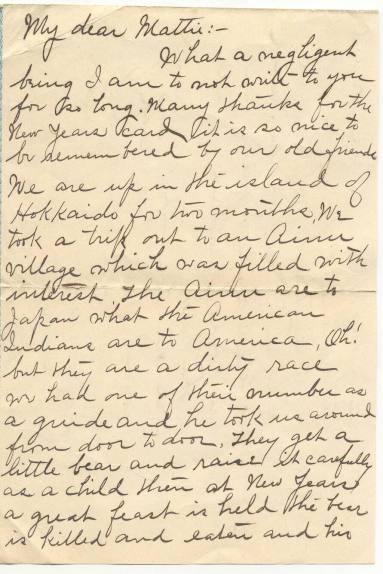 My dear Mattie:-
What a negligent
being I am to not write to you
for so long. Many thanks for the
New Years card, it is so nice to
be remembered by our old friends
We are up in the island of
Hokkaido for two months. We
took a trip out to an Ainu
village which was filled with
interest. The Ainu are to
Japan what the American
Indians are to America, Oh!
but they are a dirty race
we had one of their number as
a guide and he took us around
from door to door. They get a
little bear and raise it carefully
as a child then at New Years
a great feast is held the bear
is killed and eaten and his